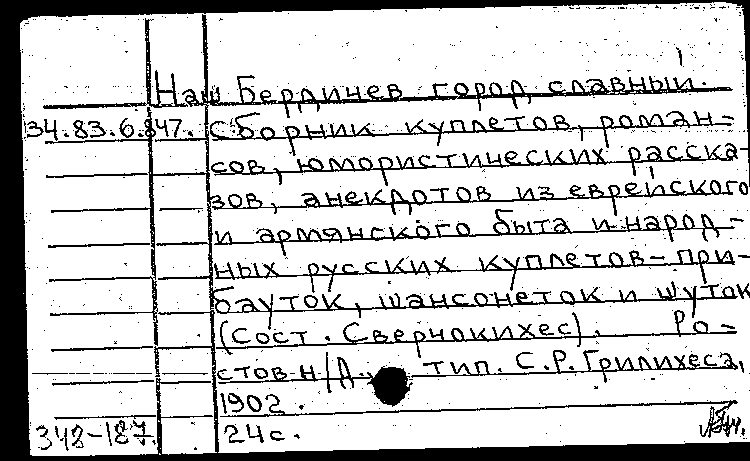 Наш Бердичев город славный.
34.83.6.847. Сборник куплетов, роман-
сов, юмористических расска-
зов, анекдотов из еврейского
и армянского быта и народ-
ных русских куплетов-при-
бауток, шансонеток и шуток
(Сост. Свернокихес). Ро-
стов н/Д., тип. С.Р. Грилихеса,
1902.
348-187. 24с.